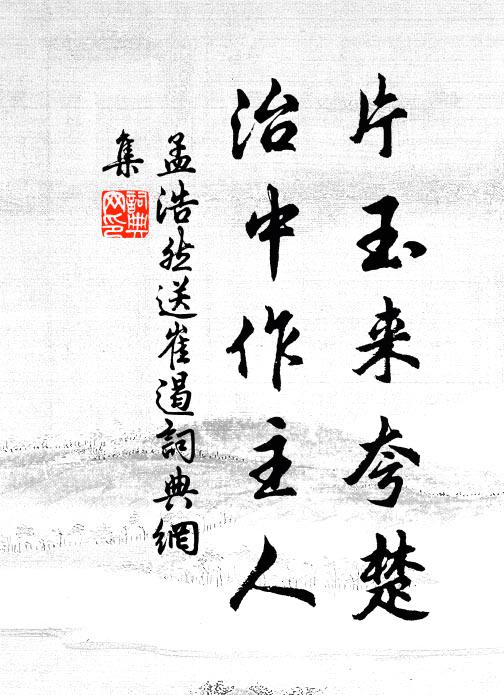 片玉来夸楚
治中作主人
孟浩然送崔遏詞典網
集
詞典
网印